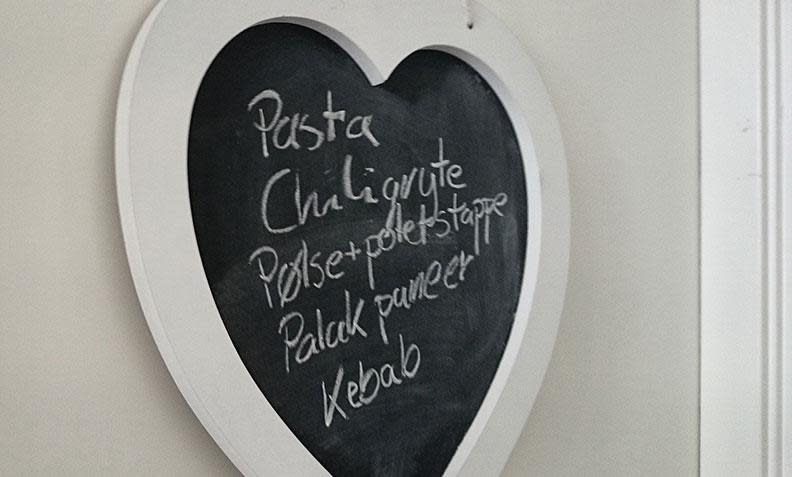 Pasta
Chiligryte
Pølse+potetstappe
Palak paneer
Kebab